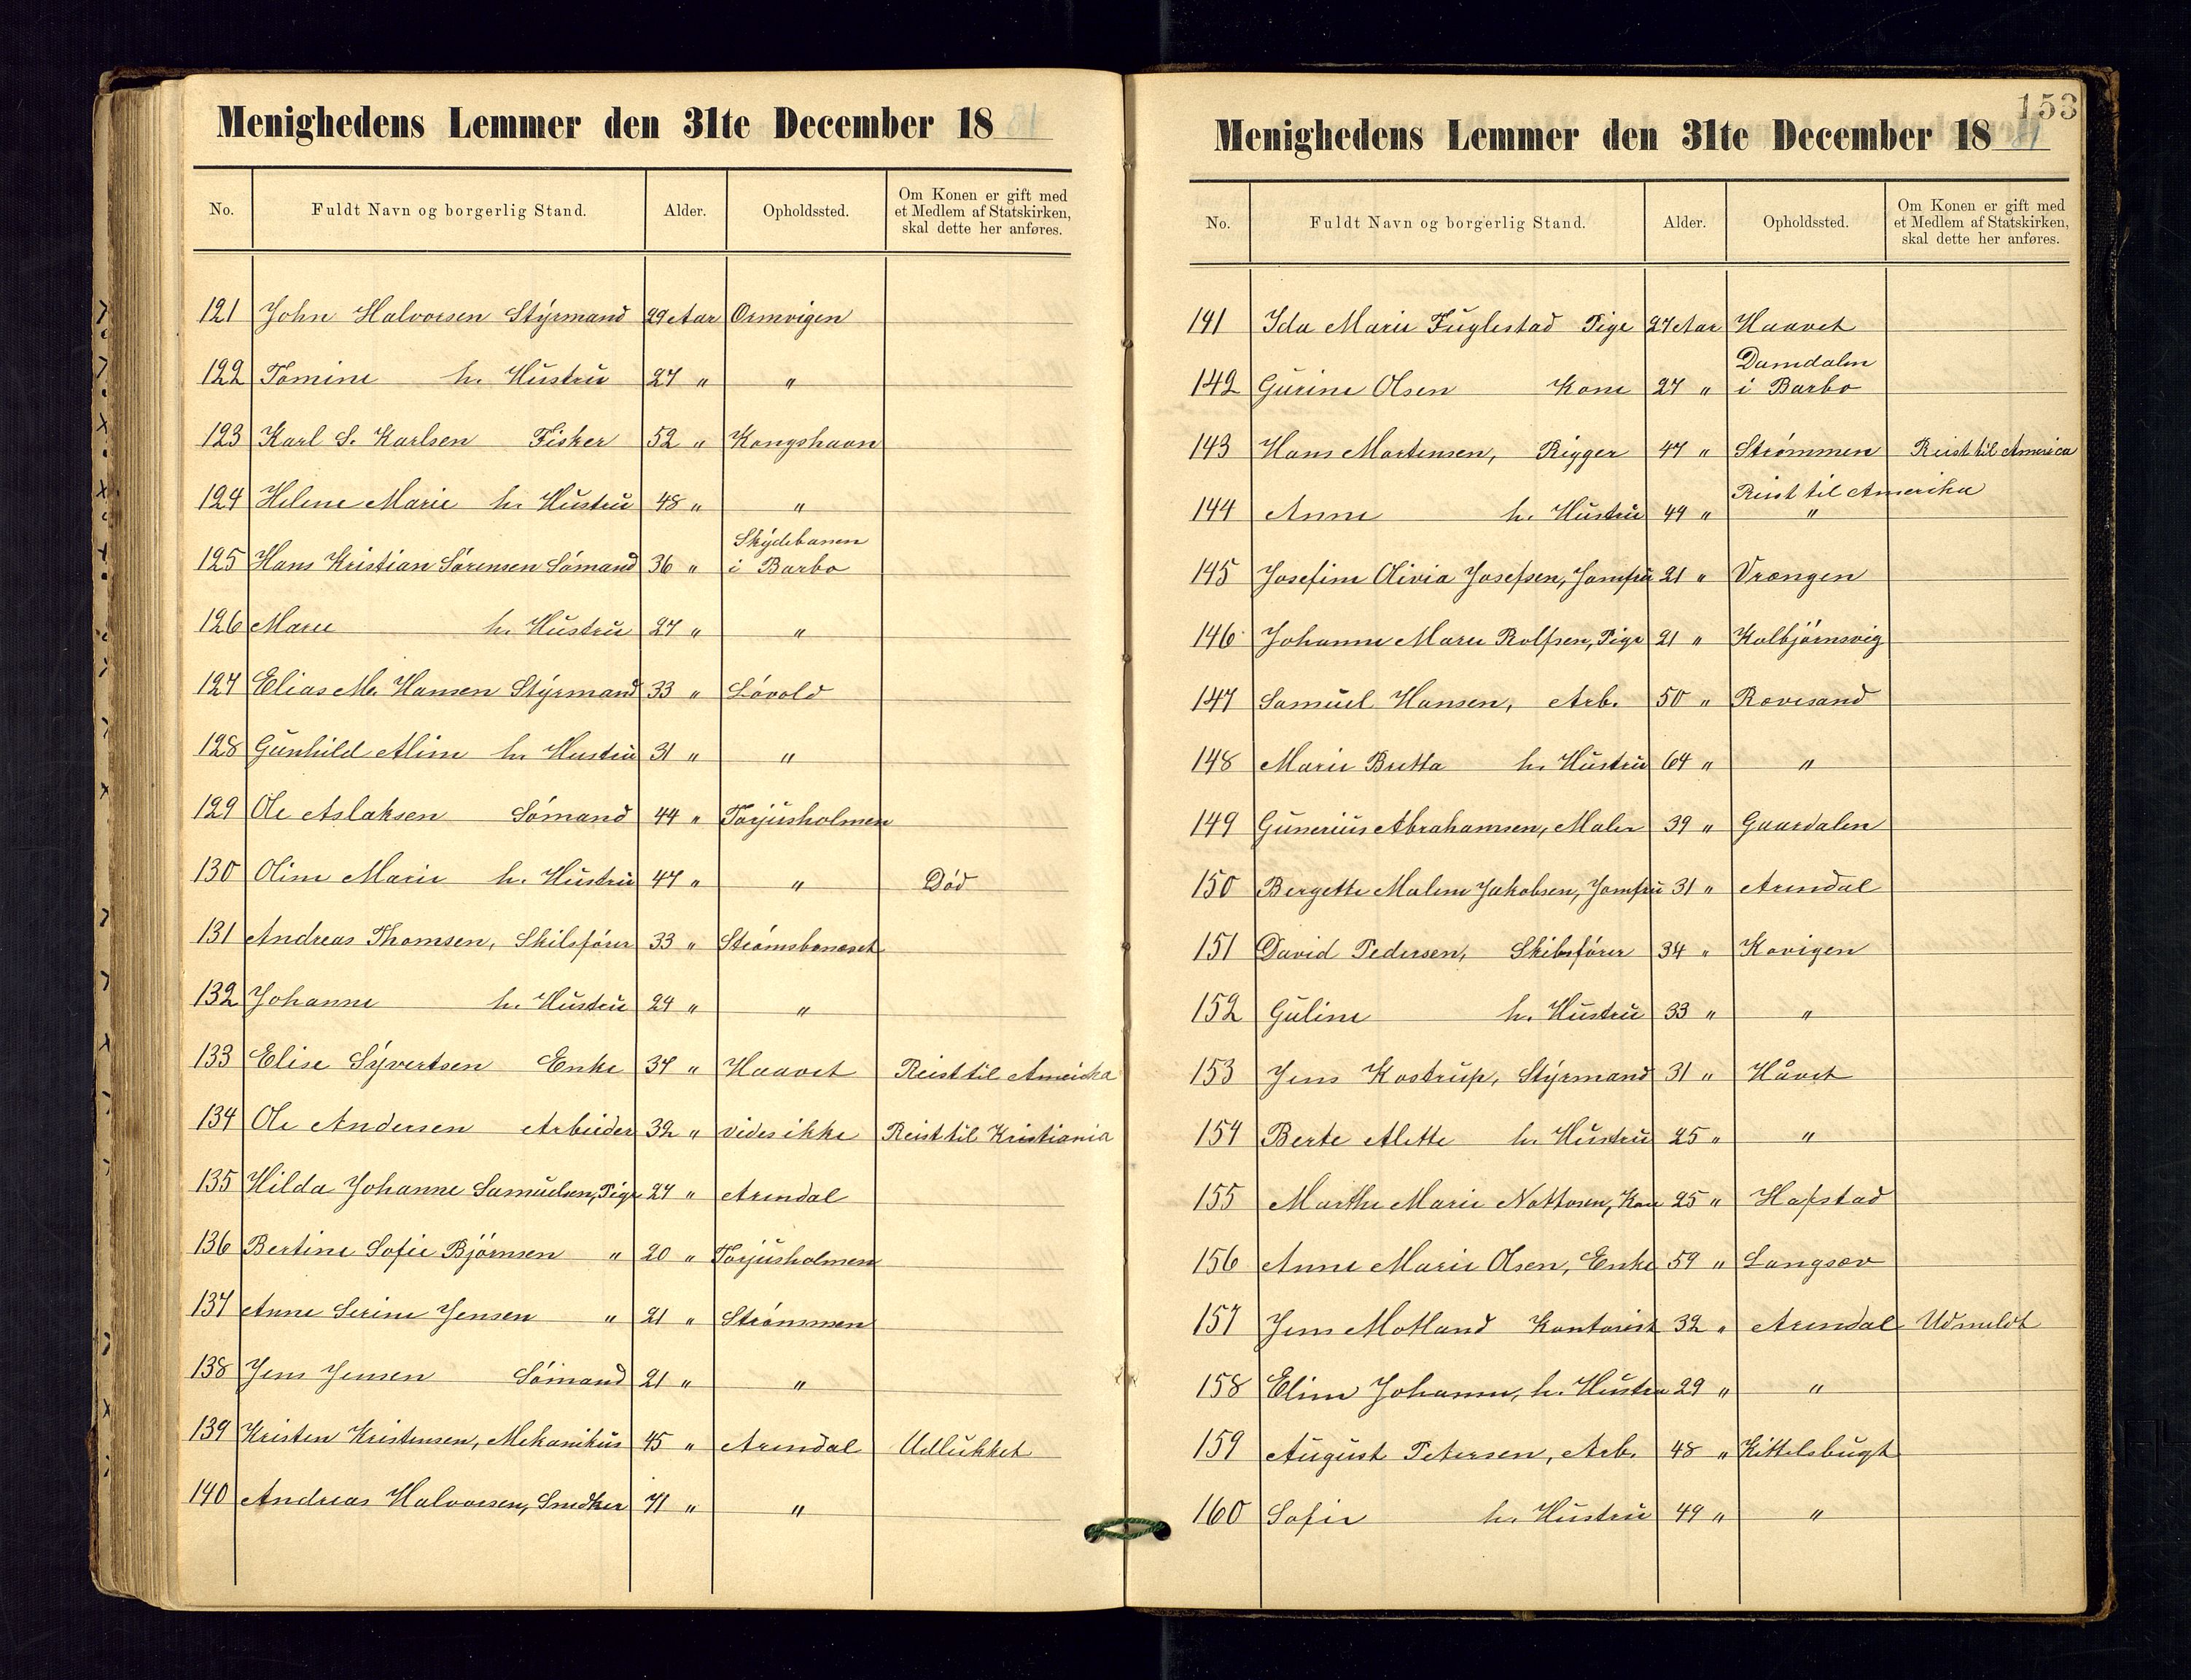 Menighedens Lemmer den 31te December 1881
No. Fuldt Navn og borgerlig Stand. Alder. Opholdssted. Om Konen er gift med et Medlem af Statskirken, skal dette her anføres.
121 John Halvorsen Styrmand 29 Aar Ormvigen
122 Tomine h. Hustru 27 " "
123 Karl S. Karlsen Fisker 52 " Kongshavn
124 Helene Marie h. Hustru 48 " "
125 Hans Kristian Sørensen Sømand 36 " Skydebanen i Barbo
126 Marie h. Hustru 27 " "
127 Elias M. Hansen Styrmand 33 " Løvold
128 Gunhild Aline h. Hustru 31 " "
129 Ole Aslaksen Sømand 44 " Torjusholmen
130 Oline Marie h. Hustru 47 " " Død
131 Andreas Thomsen, Skilsfører 33 " Strømsbonæset
132 Johanne h. Hustru 24 " "
133 Elise Syvertsen Enke 37 " Haavet Reist til Amerika
134 Ole Andersen Arbeider 32 " vides ikke Reist til Kristiania
135 Hilda Johanne Samuelsen, Pige 27 " Arendal
136 Bertine Sofie Bjørnsen " 20 " Torjusholmen
137 Anne Serine Jensen " 21 " Strømmen
138 Jens Jensen Sømand 21 " "
139 Kristen Kristensen, Mekanikus 45 " Arendal Udlukket
140 Andreas Halvorsen, Snedker 71 " "
153
Menighedens Lemmer den 31te December 1881
No. Fuldt Navn og borgerlig Stand. Alder. Opholdssted. Om Konen er gift med et Medlem af Statskirken, skal dette her anføres.
141 Ida Marie Fuglestad Pige 27 Aar Haavet
142 Gurine Olsen Kone 27 " Damdalen i Barbo
143 Hans Mortensen, Rigger 47 " Strømmen Reist til America
144 Anne h. Hustru 49 " Reist til Amerika "
145 Josefine Olivia Josefsen, Jomfru 21 " Vrængen
146 Johanne Marie Rolfsen, Pige 21 " Kolbjørnsvig
147 Samuel Hansen, Arb. 50 " Rævesand
148 Marie Britta h. Hustru 64 " "
149 Gunerius Abrahamsen, Maler 39 " Gaardalen
150 Bergette Malene Jakobsen, Jomfru 31 " Arendal
151 David Pedersen, Skibsfører 34 " Kovigen
152 Guline h. Hustru 33 " "
153 Jens Kostrup, Styrmand 31 " Håvet
154 Berte Alette h. Hustru 25 " "
155 Marthe Marie Nottosen, Kone 25 " Hafstad
156 Anne Marie Olsen, Enke 59 " Langsæv
157 Jens Motland Kontorist 32 " Arendal Udmeldt
158 Eline Johanne, h. Hustru 29 " "
159 August Petersen, Arb. 48 " Kittelsbugt
160 Sofie h. Hustru 49 " "